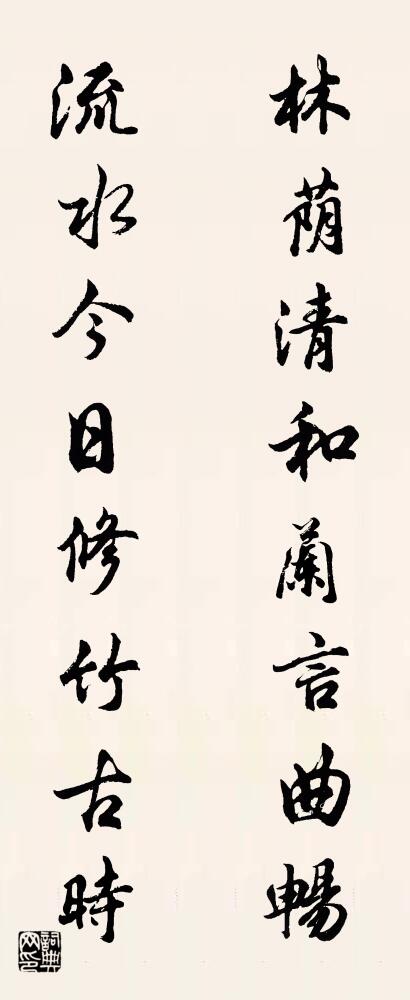 林蔭清和蘭言曲暢
流水今日修竹古時
詞典網印